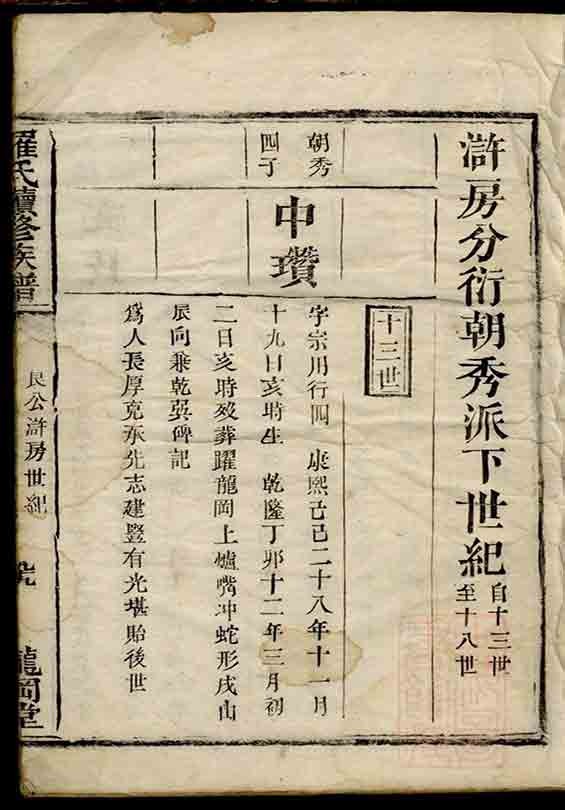 滸房分衍朝秀派下世紀
自十三世
至十八世
十三世
朝秀
四子
中瓚
字宗用行四 康熙己巳二十八年十一月
十九日亥時生 乾隆丁卯十二年三月初
二日亥時歿葬躍龍岡上爐嘴冲蛇形戌山
辰向兼乾巽碑記
為人長厚克承先志建豎有光堪貽後世
羅氏續修族譜
良公滸房世紀
龍岡堂